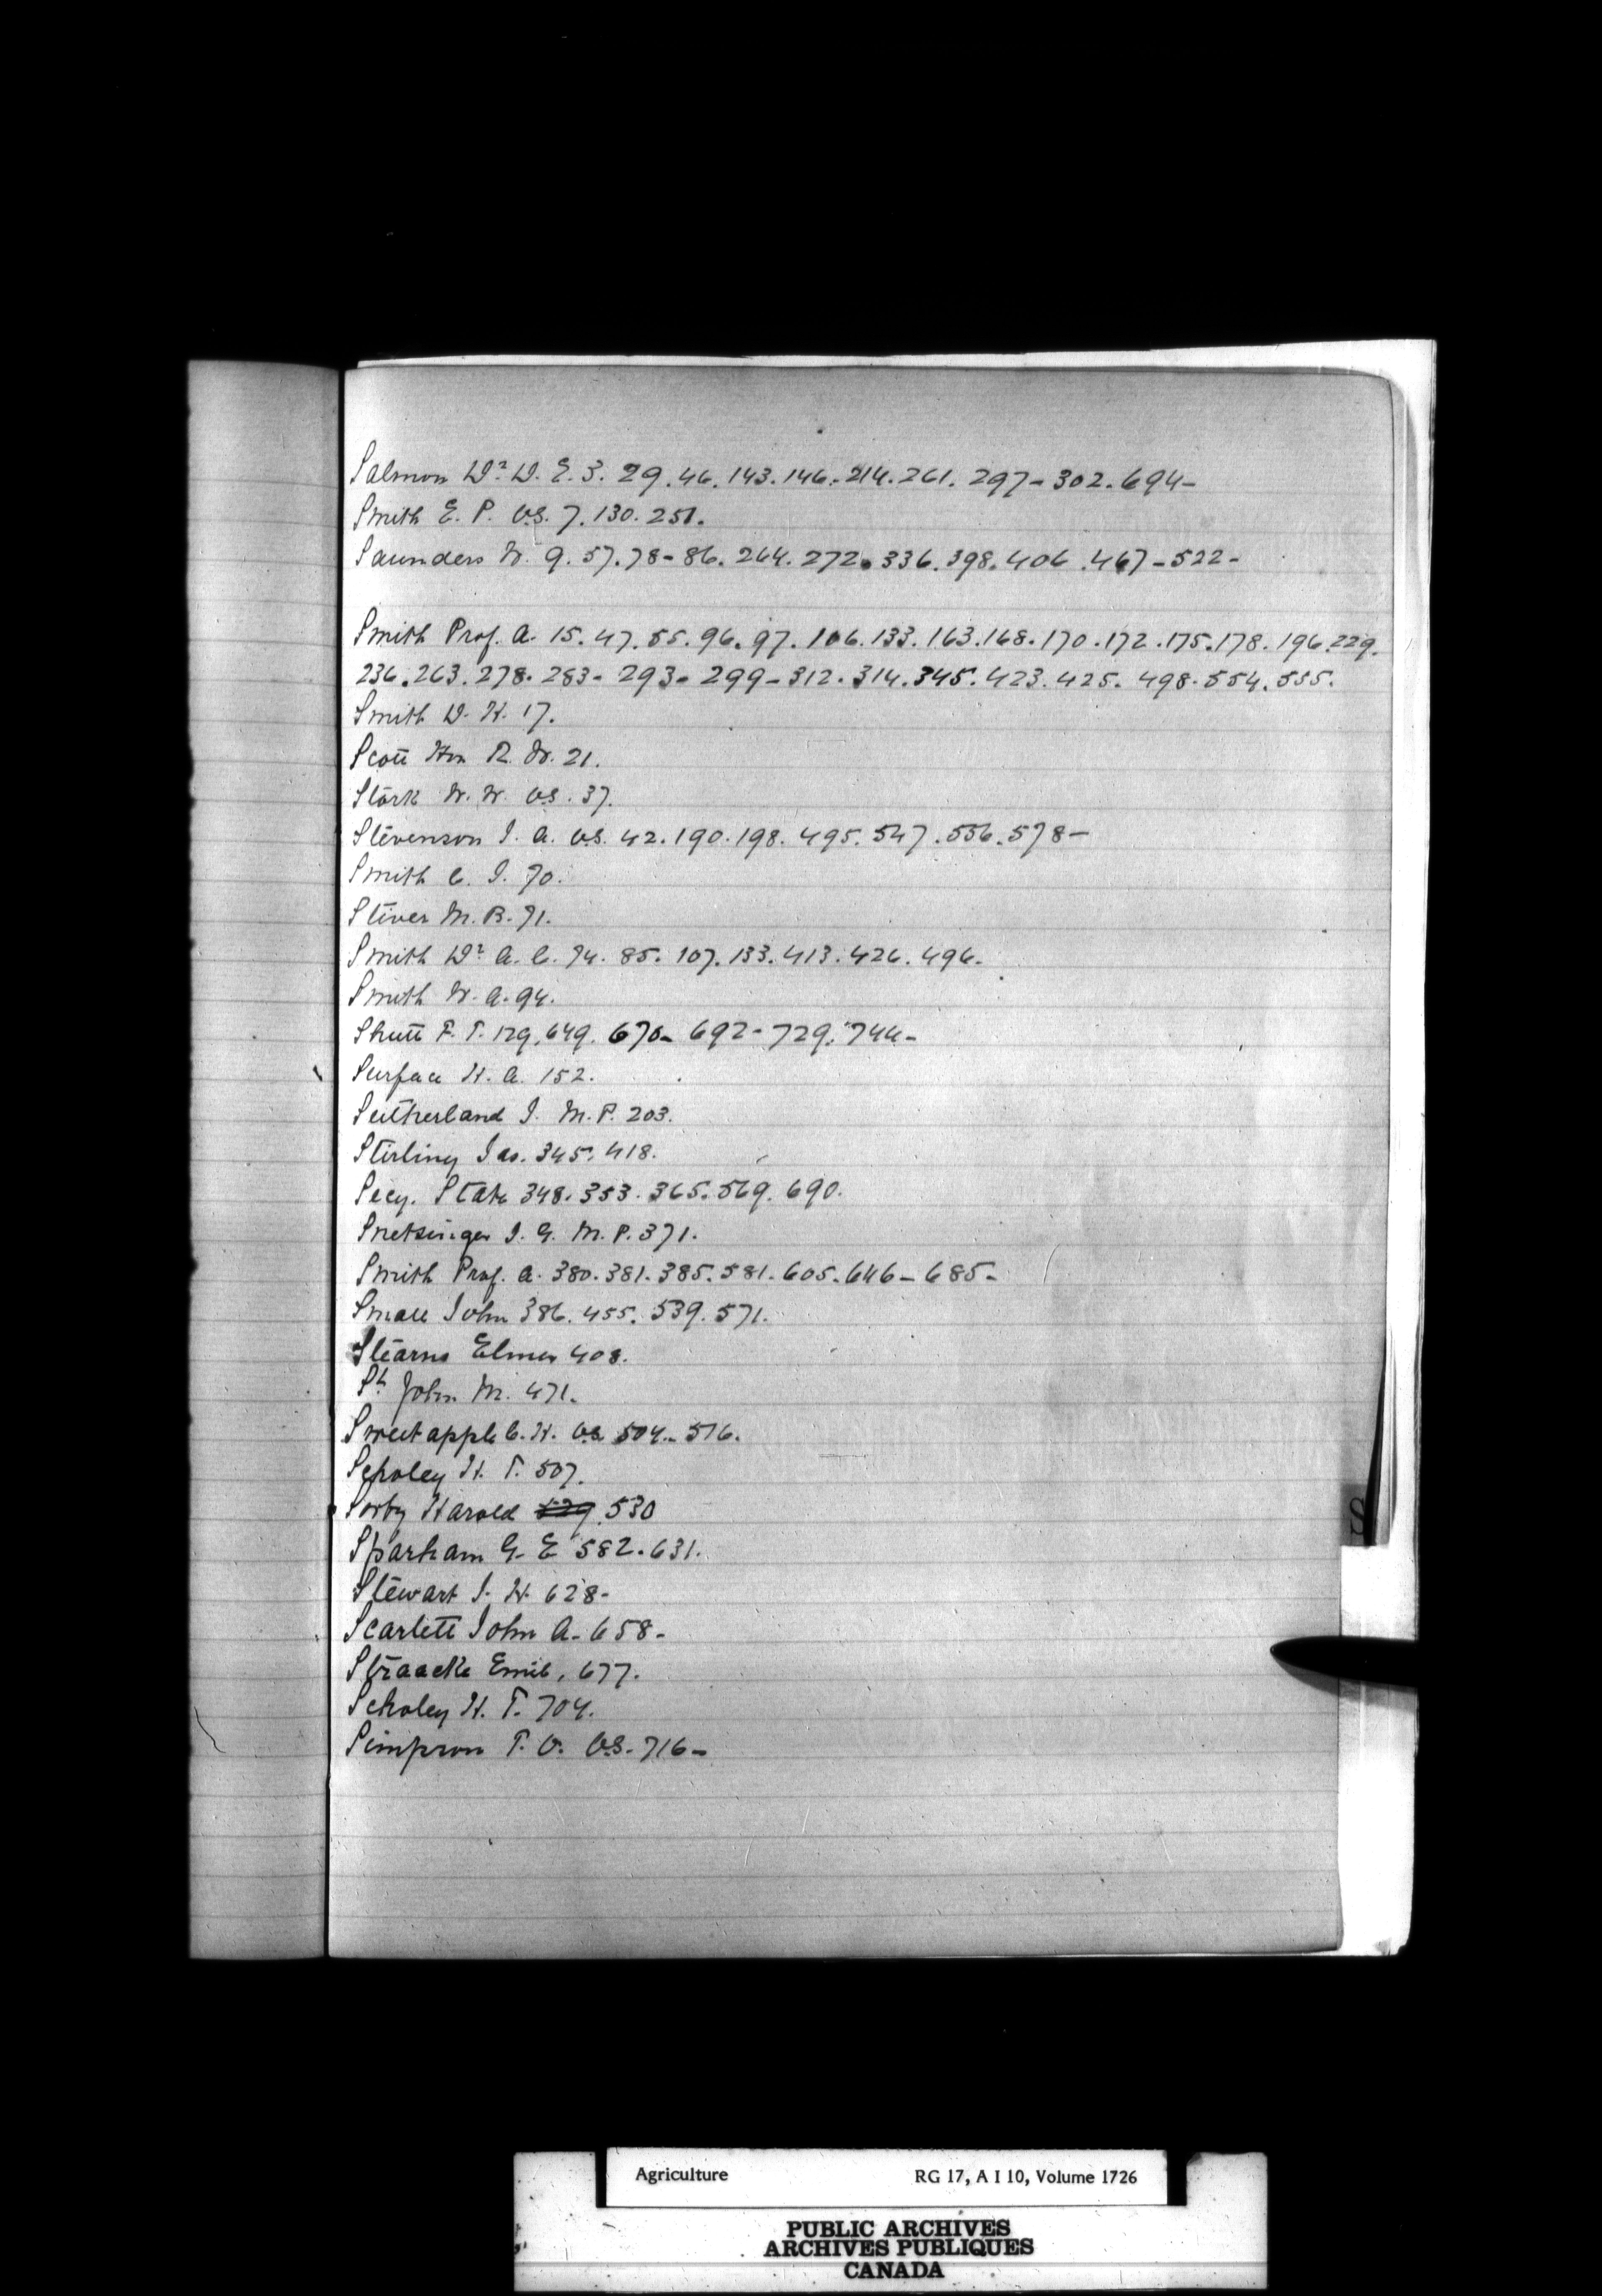 Salmon Dr. D. E. 3. 29. 46. 143. 146. 214. 261. 297- 302. 694-
Smith E. P. V.S. 7. 130. 251.
Saunders W. 9. 57. 78- 86. 264. 272. 336. 398. 406. 467- 522-
Smith Prof. A. 15. 47. 55. 96. 97. 106. 133. 163. 168. 170. 172. 175. 178. 196. 229.
236. 263. 278. 283- 293- 299- 312. 314. 345. 423. 425. 498. 554. 555.
Smith D. H. 17.
Scott Hon R. W. 21.
Stork W. W. V.S. 37.
Stevenson J. A. V.S. 42. 190. 198. 495. 547. 556. 578-
Smith C. J. 70.
Stiver M. B. 71.
Smith Dr. A. C. 74. 85. 107. 133. 413. 426. 496-
Smith W. A. 94.
Shutt F. T. 129. 649. 670- 692- 729. 744-
Surface H. A. 152.
Sutherland J. M.P. 203.
Stirling Jas. 345. 418.
Secy. State 348. 353. 365. 569. 690.
Snetsinger J. G. M.P. 371.
Smith Prof. A. 380. 381. 385. 581. 605. 646- 685-
Small John 386. 455. 539. 571.
Stearns Elmer 408.
St. John M. 471.
Sweetapple C. H. V.S. 504- 516.
Scholey H. T. 507.
Sorby Harold 529. 530
Sparham G. E 582. 631.
Stewart J. H. 628-
Scarlett John A- 658-
Straacke Emil, 677.
Scholey H. T. 704.
Simpson T. V. V.S. 716-
S
Agriculture RG 17, A I 10, Volume 1726
PUBLIC ARCHIVES
ARCHIVES PUBLIQUES
CANADA